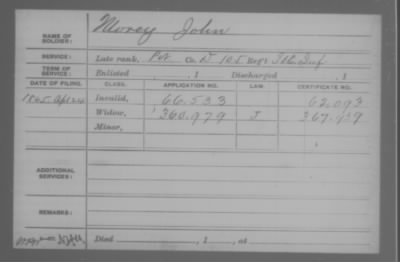 NAME OF SOLDIER: Morey John
SERVICE: Late rank, Pvt Co. D 105 Reg't Ills Inf
TERM OF SERVICE: Enlisted , 1 Discharged , 1
DATE OF FILING. CLASS. APPLICATION NO. LAW. CERTIFICATE NO.
1865 Apl 24 Invalid, 66.533 62.093
Widow, 360.979 J
Minor,
ADDITIONAL SERVICES:
REMARKS:
Died , 1 , at